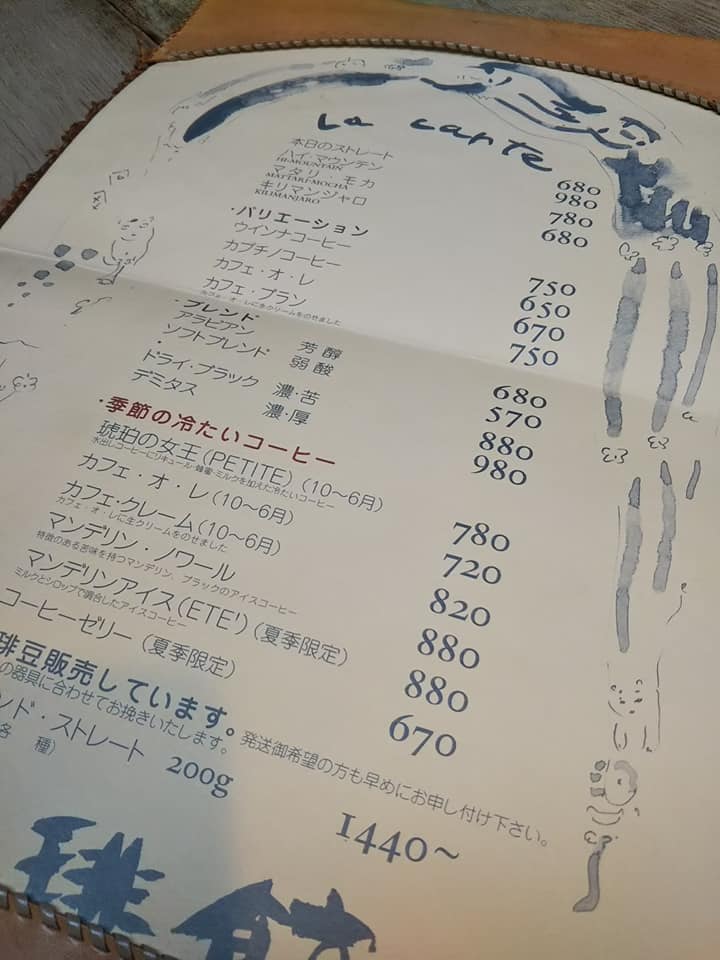 La carte
本日のストレート 680
ハイ・マウンテン 980
HI-MOUNTAIN
マタリ・モカ 780
MATTARI-MOCHA
キリマンジャロ 680
KILIMANJARO
・バリエーション
ウインナコーヒー 750
カプチノコーヒー 650
カフェ・オ・レ 670
カフェ・ブラン 750
カフェ・オ・レに生クリームをのせました
・ブレンド
アラビアン 芳醇 680
ソフトブレンド 弱酸 570
ドライ・ブラック 濃・苦 880
デミタス 濃・厚 980
・季節の冷たいコーヒー
琥珀の女王(PETITE)(10〜6月) 780
水出しコーヒーにリキュール・蜂蜜・ミルクを加えた冷たいコーヒー
カフェ・オ・レ(10〜6月) 720
カフェ・クレーム(10〜6月) 820
カフェ・オ・レに生クリームをのせました
マンデリン・ノワール 880
特徴のある苦味を持つマンデリン、ブラックのアイスコーヒー
マンデリンアイス(ETE!)(夏季限定) 880
ミルクとシロップで調合したアイスコーヒー
コーヒーゼリー(夏季限定) 670
琲豆販売しています。
の器具に合わせてお挽きいたします。発送御希望の方も早めにお申し付け下さい。
ンド・ストレート 200g 1440〜
各 種)